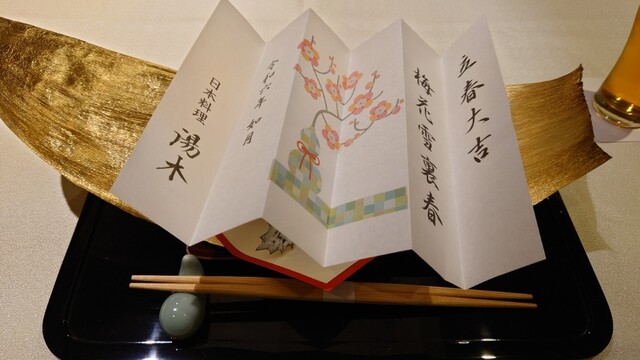 立春大吉
梅花雪裏春
令和六年 如月
日本料理
湯木